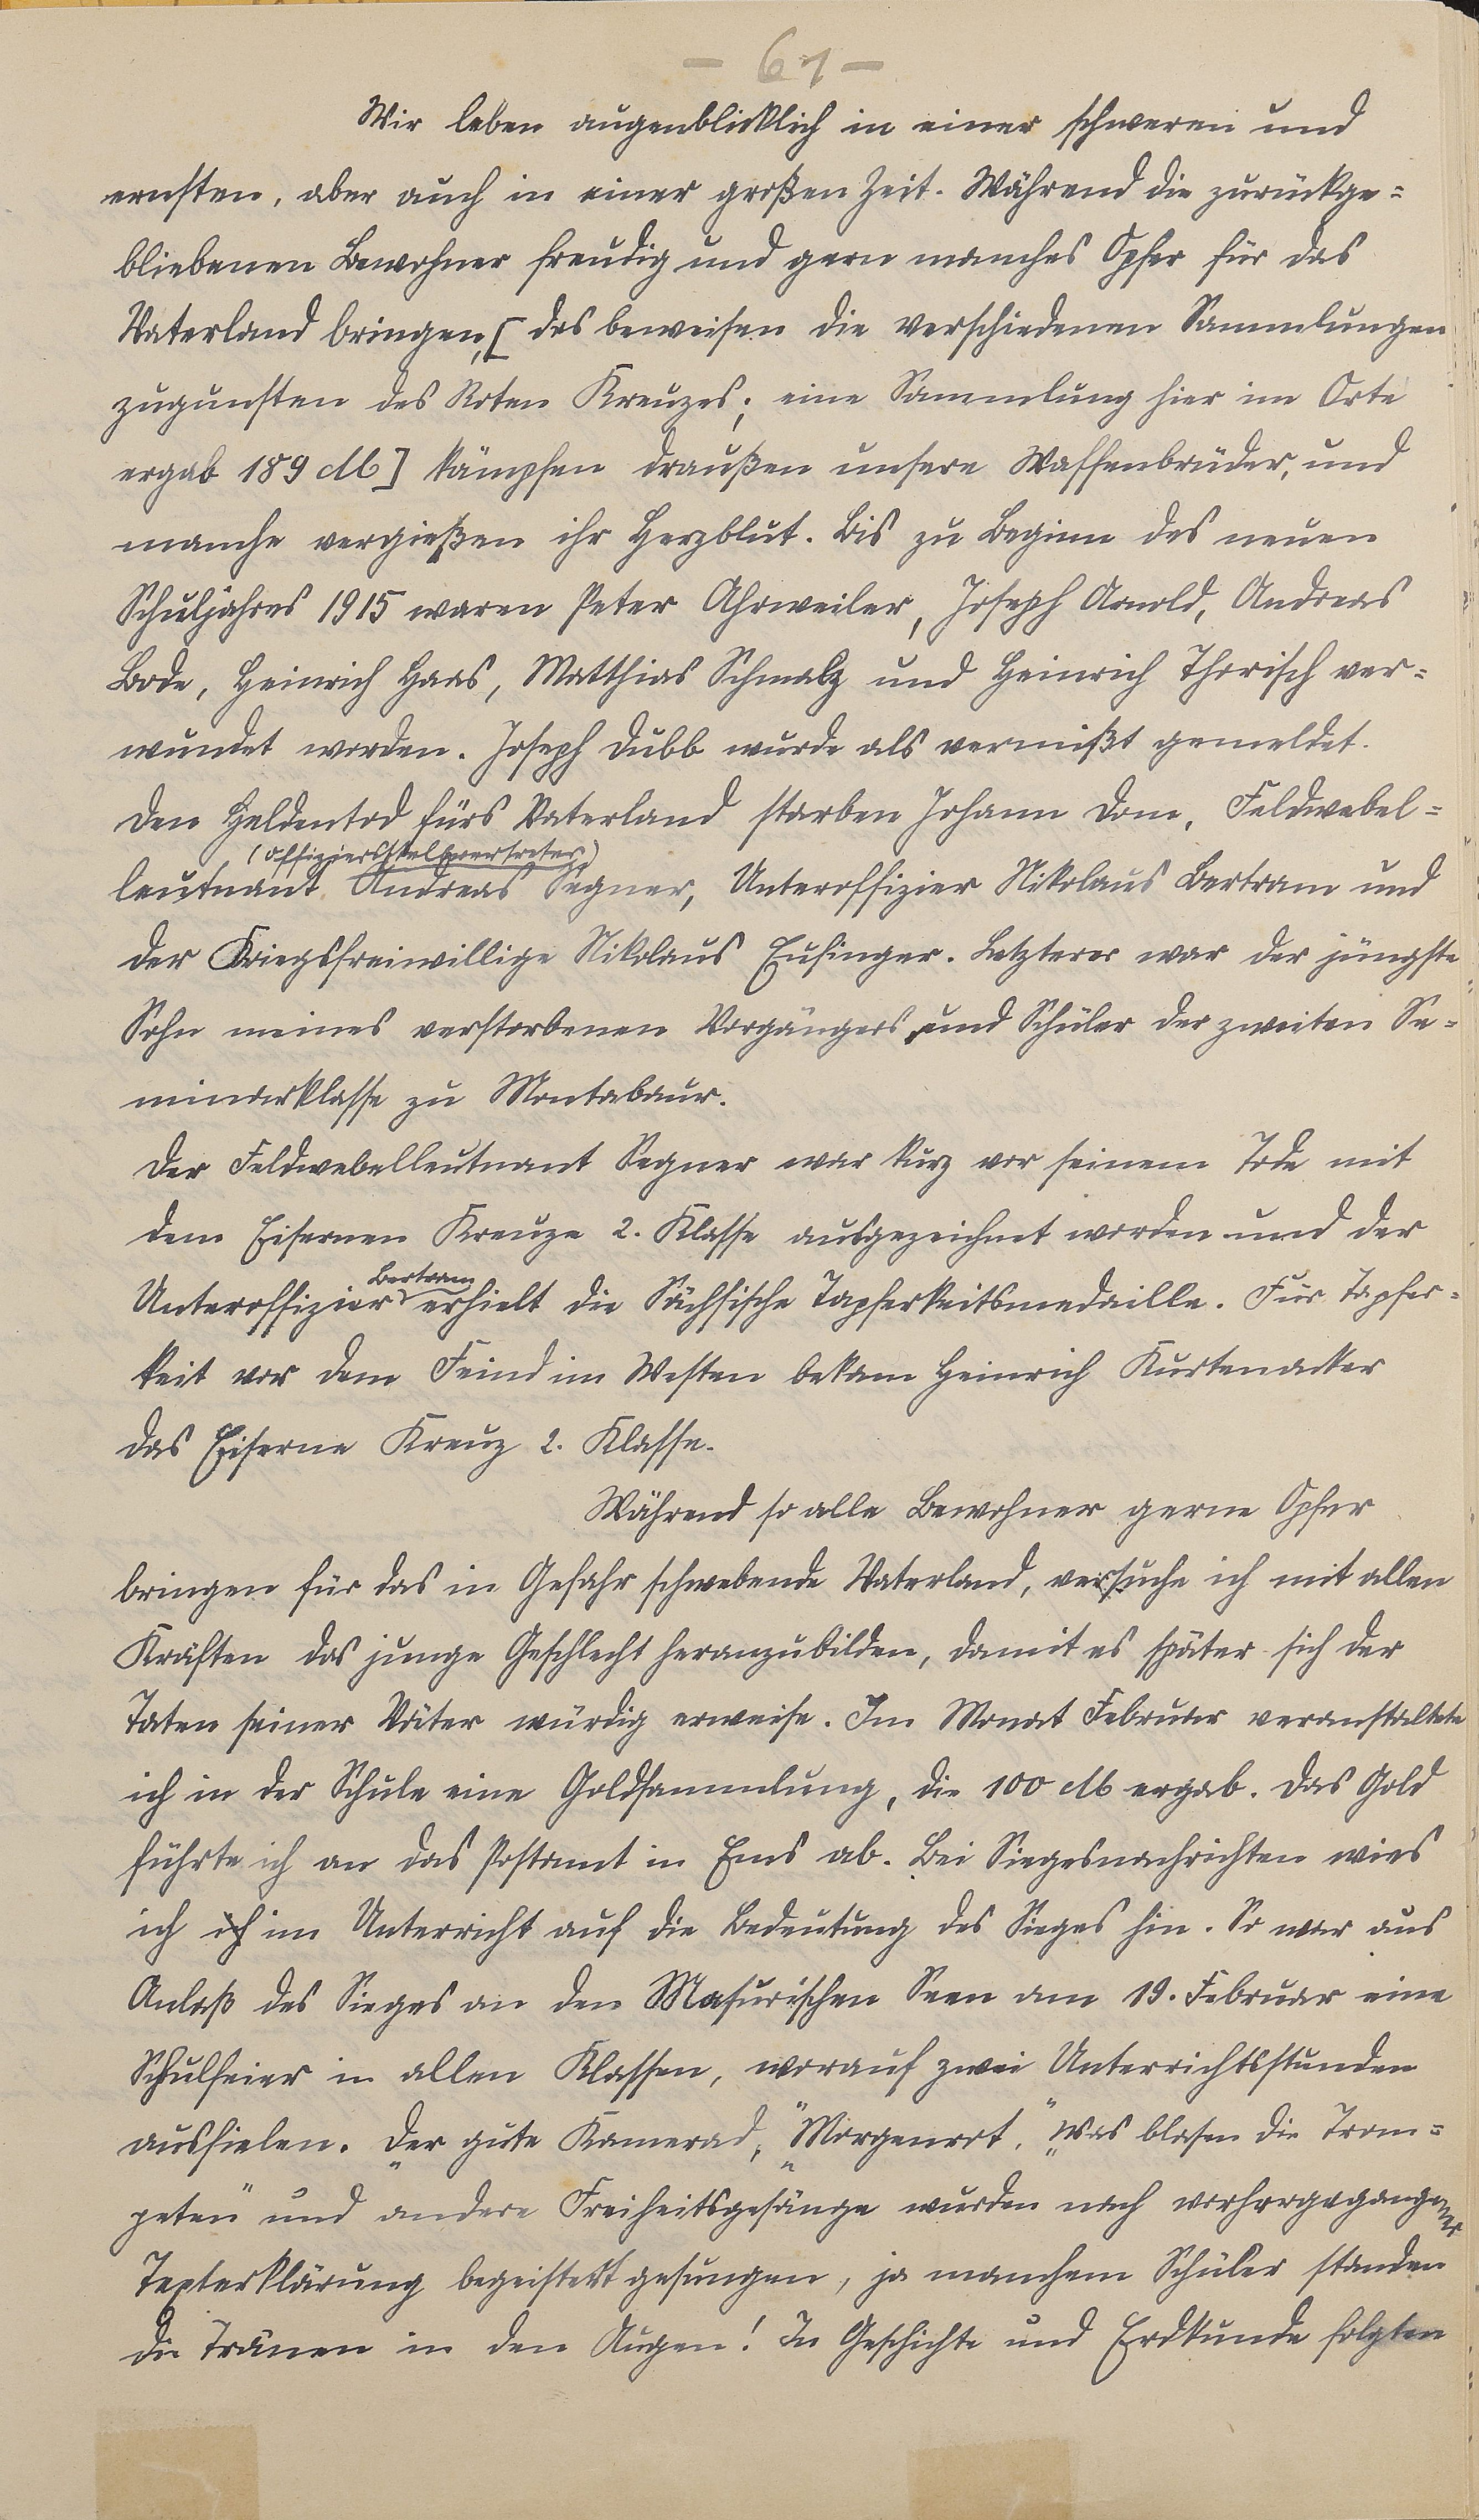 - 61 -
Wir leben augenblicklich in einer schweren und
ernsten, aber auch in einer großen Zeit. Während die zurückge=
bliebenen Bewohner freudig und gern manches Opfer für das
Vaterland bringen, [das beweisen die verschiedenen Sammlungen
zugunsten des Roten Kreuzes; eine Sammlung hier im Orte
ergab 189 M] kämpfen draußen unsere Waffenbrüder, und
manche vergießen ihr Herzblut. Bis zu Beginn des neuen
Schuljahres 1915 waren Peter Ahrweiler, Joseph Arnold, Andreas
Bode, Heinrich Haas, Matthias Schmalz und Heinrich Thorisch ver=
wundet worden. Joseph Dubb wurde als vermißt gemeldet.
Den Heldentod fürs Vaterland starben Johann Dom, Feldwebel=
(Offiziersstellvertreter)
leutnant Andreas Segner, Unteroffizier Nikolaus Bertram und
der Kriegsfreiwillige Nikolaus Eufinger. Letzterer war der jüngste
Sohn meines verstorbenen Vorgängers und Schüler der zweiten Se=
minarklasse zu Montabaur.
Der Feldwebelleutnant Segner war kurz vor seinem Tode mit
dem Eisernen Kreuze 2. Klasse ausgezeichnet worden und der
Bertram
Unteroffizier erhielt die Sächsische Tapferkeitsmedaille. Für Tapfer=
keit vor dem Feind im Westen bekam Heinrich Kurtenacker
das Eiserne Kreuz 2. Klasse.
Während so alle Bewohner gerne Opfer
bringen für das in Gefahr schwebende Vaterland, versuche ich mit allen
Kräften das junge Geschlecht heranzubilden, damit es später sich der
Taten seiner Väter würdig erweise. Im Monat Februar veranstaltete
ich in der Schule eine Goldsammlung, die 100 M ergab. Das Gold
führte ich an das Postamt in Ems ab. Bei Siegesnachrichten wies
ich ich im Unterricht auf die Bedeutung des Sieges hin. So war aus
Anlaß des Sieges an den Masurischen Seen am 19. Februar eine
Schulfeier in allen Klassen, worauf zwei Unterrichtsstunden
ausfielen. „Der gute Kamerad," „Morgenrot," „Was blasen die Trom=
peten" und andere Freiheitsgesänge wurden nach vorhergegangener
Texterklärung begeistert gesungen, ja manchem Schüler standen
die Tränen in den Augen! In Geschichte und Erdkunde folgten